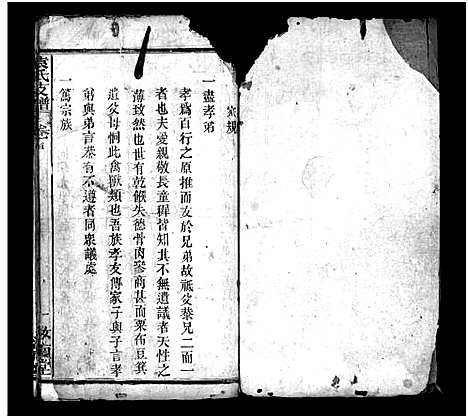 家規
一盡孝弟
孝爲百行之原推而友於兄弟故祗父恭兄二而一
者也夫愛親敬長童稺皆知其不無遺議者天性之
薄致然也世有乾餱失德骨肉參商甚而粟布豆箕
遺父母恫此禽獸類也吾族孝友傳家子與子言孝
弟與弟言恭有不遵者同衆議處
一篤宗族
袁氏支譜